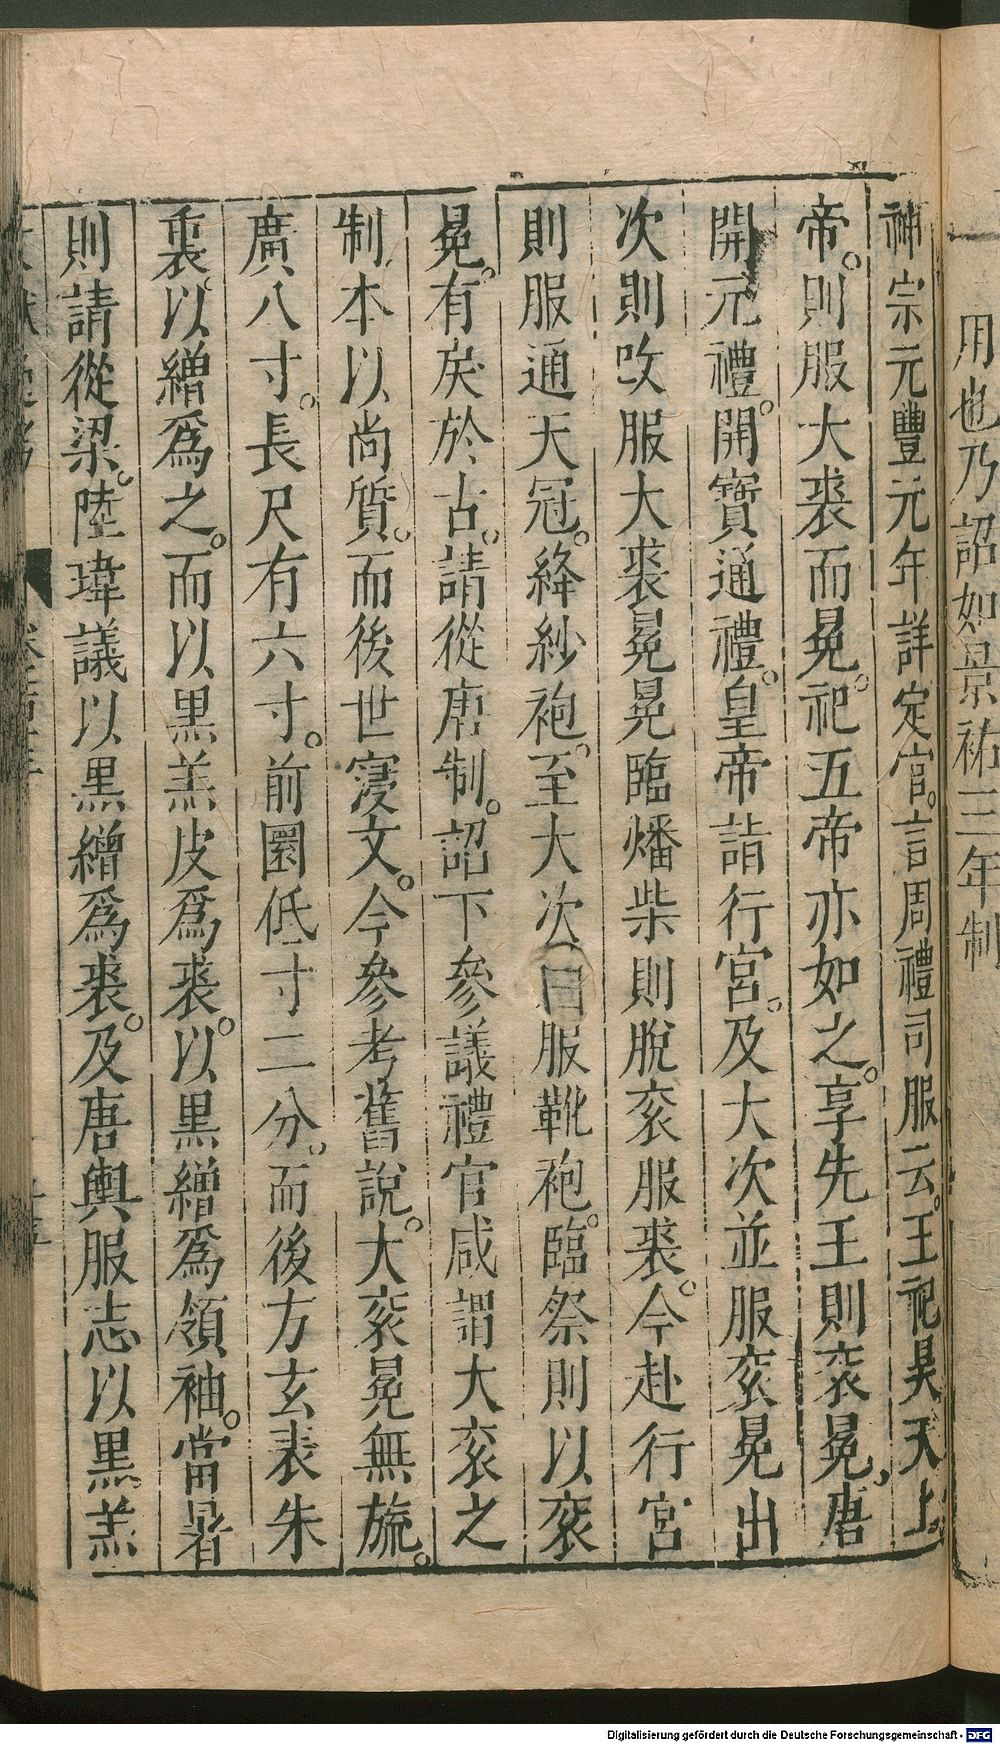 用也乃詔如景祐三年制
神宗元豐元年詳定官。言周禮司服云。王祀昊天上
帝。則服大裘而冕。祀五帝亦如之。享先王則衮冕。唐
開元禮。開寶通禮。皇帝詣行宮。及大次並服衮冕出
次則改服大裘冕冕臨燔柴則脫衮服裘。今赴行宮
則服通天冠。絳紗袍。至大次服靴袍。臨祭則以衮
冕。有戾於古。請從唐制。詔下參議禮官咸謂大衮之
制本以尚質。而後世寖文。今參考舊說。大衮冕無旒。
廣八寸。長尺有六寸。前圜低寸二分。而後方玄表朱
裏。以繒爲之。而以黑羔皮爲裘。以黑繒爲領袖。當暑
則請從梁。陸瑋議以黑繒爲裘。及唐輿服志以黑羔
Digitalisierung gefördert durch die Deutsche Forschungsgemeinschaft - DFG